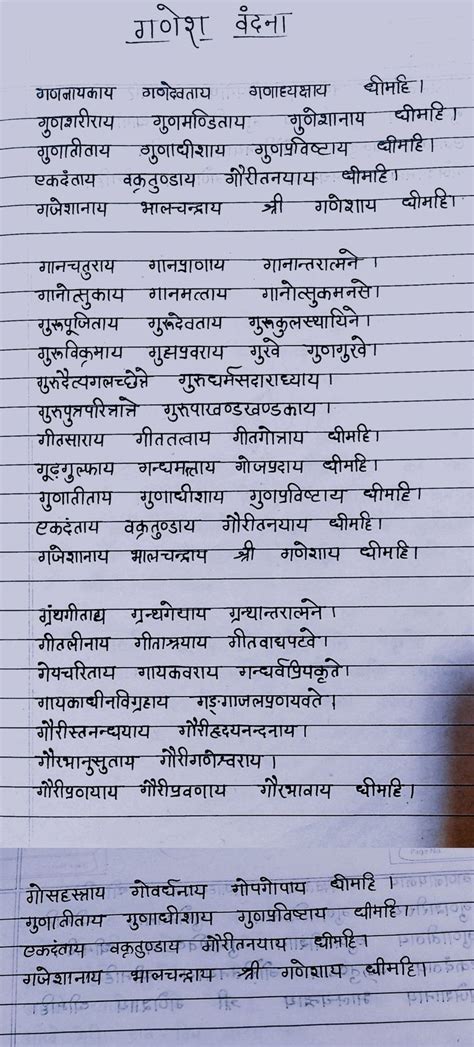 गणेश वंदना
गणनायकाय गणदेवताय गणाध्यक्षाय धीमहि।
गुणशरीराय गुणमण्डिताय गुणेशानाय धीमहि।
गुणातीताय गुणाधीशाय गुणप्रविष्टाय धीमहि।
एकदंताय वक्रतुण्डाय गौरीतनयाय धीमहि।
गजेशानाय भालचन्द्राय श्री गणेशाय धीमहि।
गानचतुराय गानप्राणाय गानान्तरात्मने।
गानोत्सुकाय गानमत्ताय गानोत्सुकमनसे।
गुरुपूजिताय गुरुदेवताय गुरुकुलस्थायिने।
गुरुविक्रमाय गुह्यप्रवराय गुरवे गुणगुरवे।
गुरुदैत्यगलच्छेत्रे गुरुधर्मसदाराध्याय।
गुरुपुत्रपरित्रात्रे गुरुपाखण्डखण्डकाय।
गीतसाराय गीततत्वाय गीतगोत्राय धीमहि।
गूढगुल्फाय गन्धमत्ताय गोजप्रदाय धीमहि।
गुणातीताय गुणाधीशाय गुणप्रविष्टाय धीमहि।
एकदंताय वक्रतुण्डाय गौरीतनयाय धीमहि।
गजेशानाय भालचन्द्राय श्री गणेशाय धीमहि।
ग्रंथगीताय ग्रन्थगेयाय ग्रन्थान्तरात्मने।
गीतलीनाय गीताश्रयाय गीतवाद्यपटवे।
गेयचरिताय गायकवराय गन्धर्वप्रियकृते।
गायकाधीनविग्रहाय गङ्गाजलप्रणयवते।
गौरीस्तनन्धयाय गौरीहृदयनन्दनाय।
गौरभानुसुताय गौरीगणेश्वराय।
गौरीप्रणयाय गौरीप्रवणाय गौरभावाय धीमहि।
गोसहस्त्राय गोवर्धनाय गोपगोपाय धीमहि।
गुणातीताय गुणाधीशाय गुणप्रविष्टाय धीमहि।
एकदंताय वक्रतुण्डाय गौरीतनयाय धीमहि।
गजेशानाय भालचन्द्राय श्री गणेशाय धीमहि।